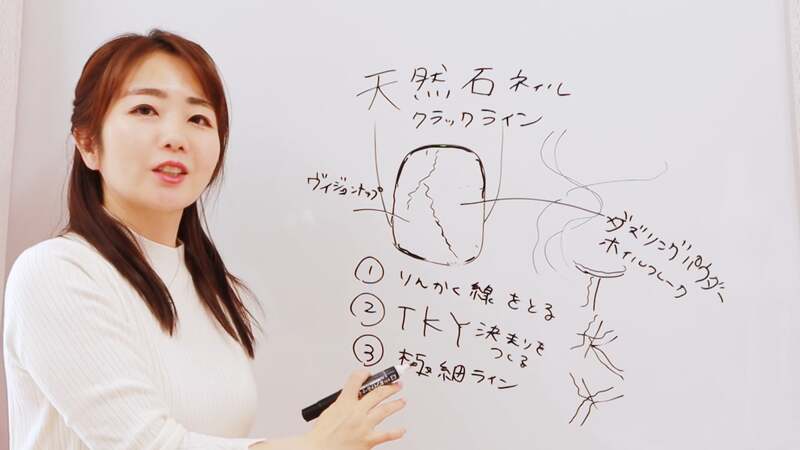 天然石ネイル
クラックライン
ヴィジョントップ
ダズリングパウダー
ホイルフレーク
① りんかく線をとる
② TKY 決まりを
つくる
③ 極細ライン